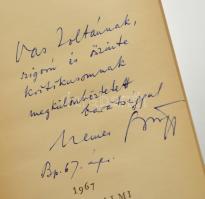 Vas Zoltánnak,
szigorú és őszinte
kritikusomnak
megkülönböztetett
barátsággal
Nemes György
Bp. 67. ápr.
1967